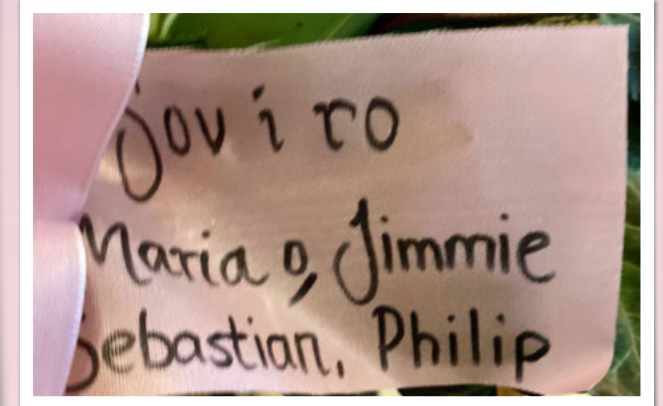 Sov i ro
Maria o, Jimmie
Sebastian, Philip